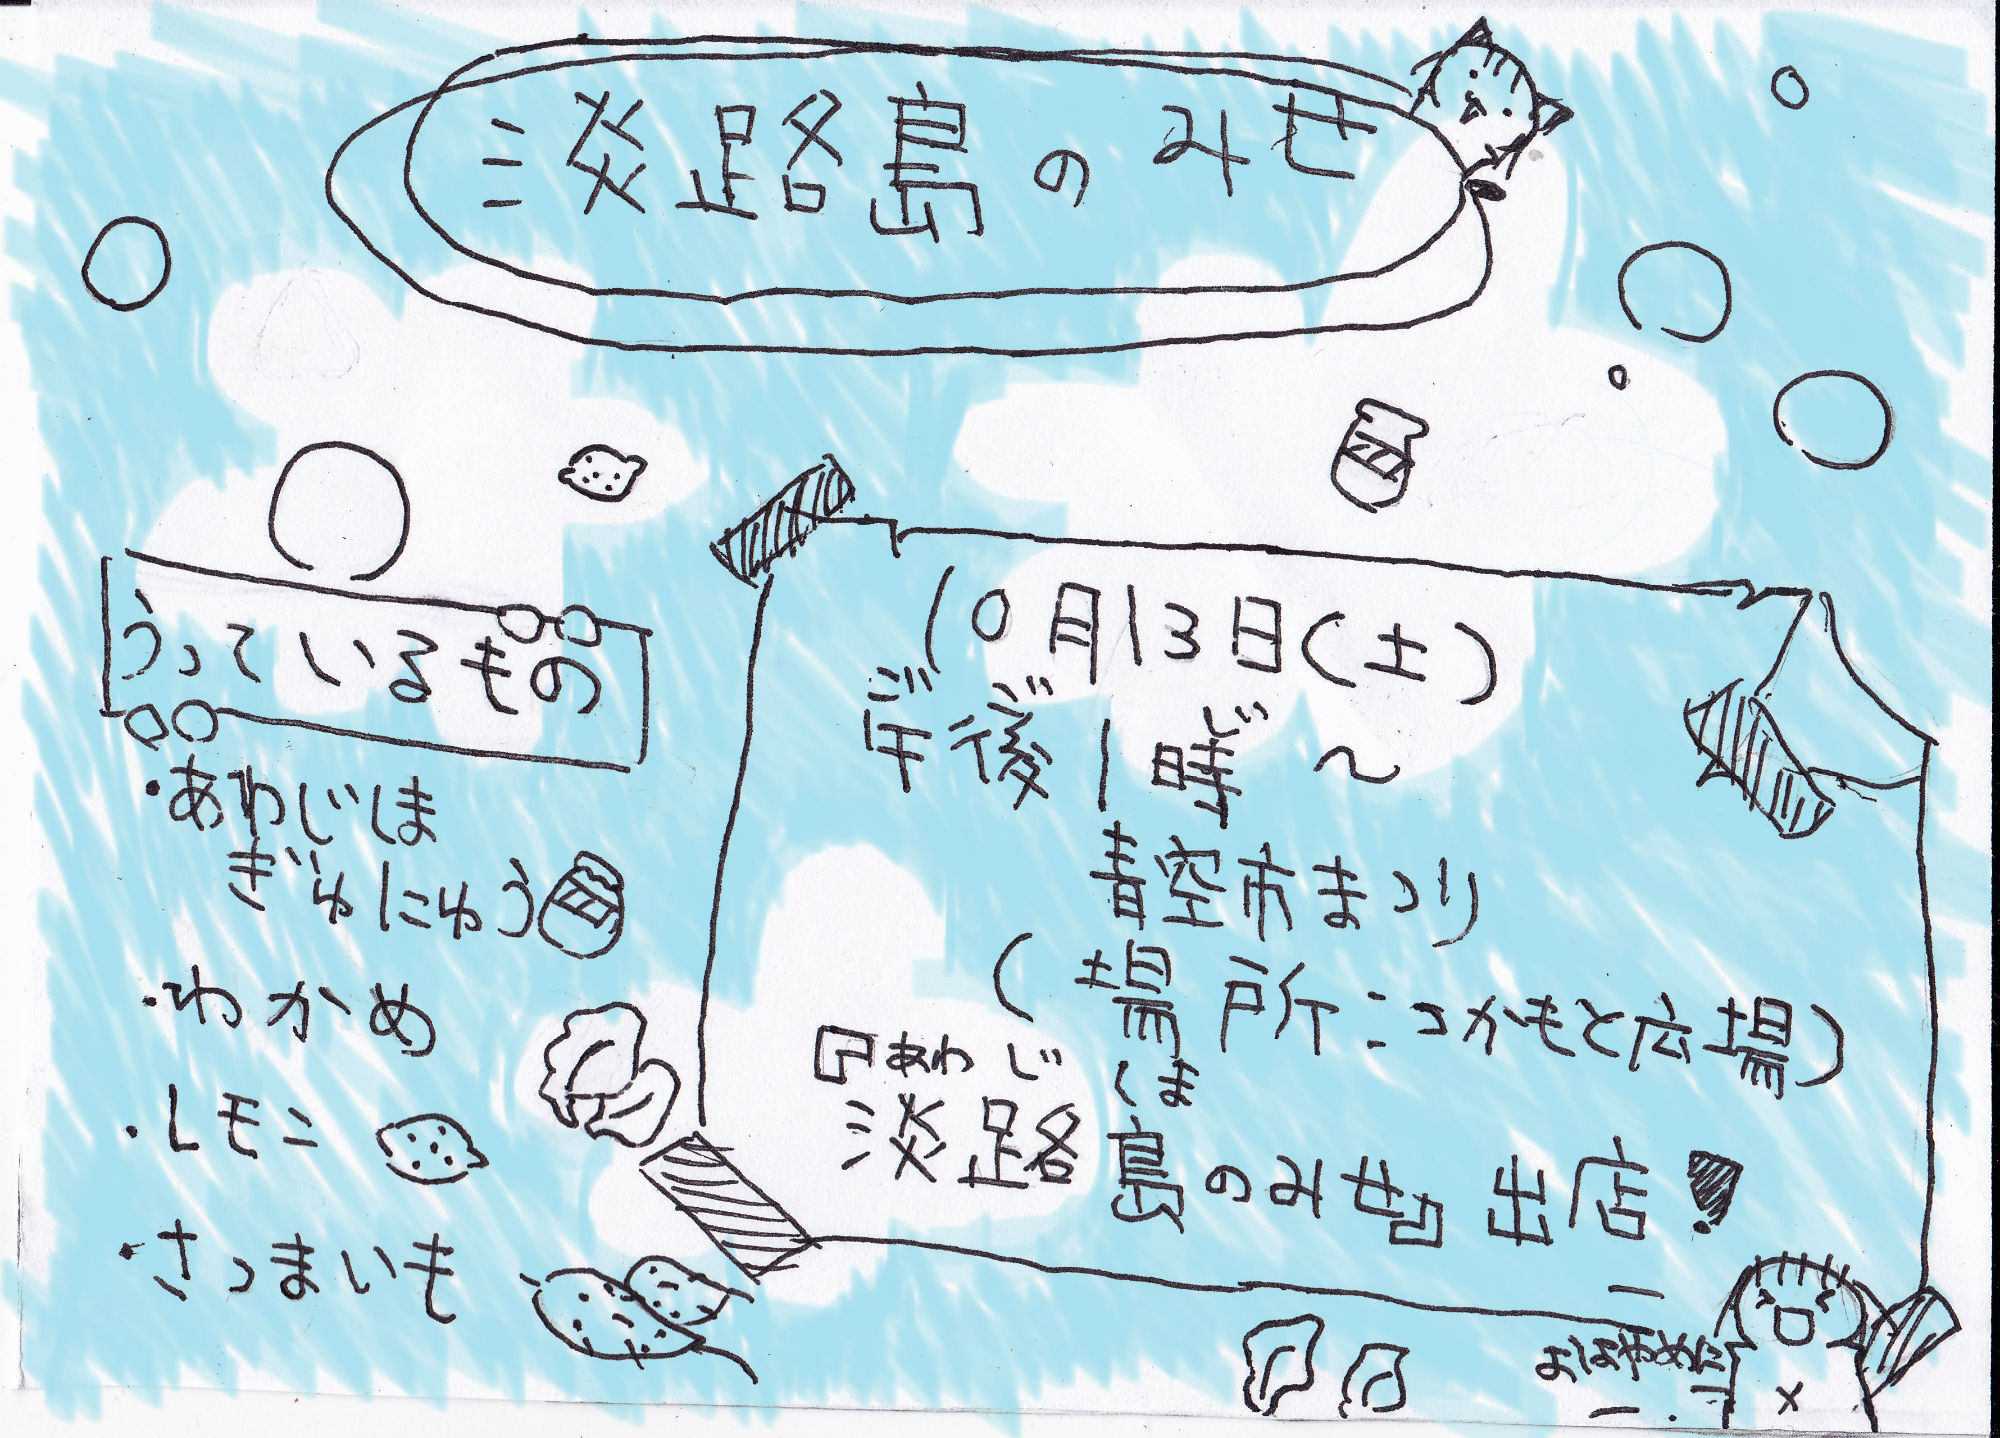 淡路島のみせ
うっているもの
・あわじしま
ぎゅにゅう
・わかめ
・レモン
・さつまいも
10月13日(土)
ご ご じ
午後1時〜
青空市まつり
(場所:つかもと広場)
あわじ しま
『淡路島のみせ』出店!
おはやめに